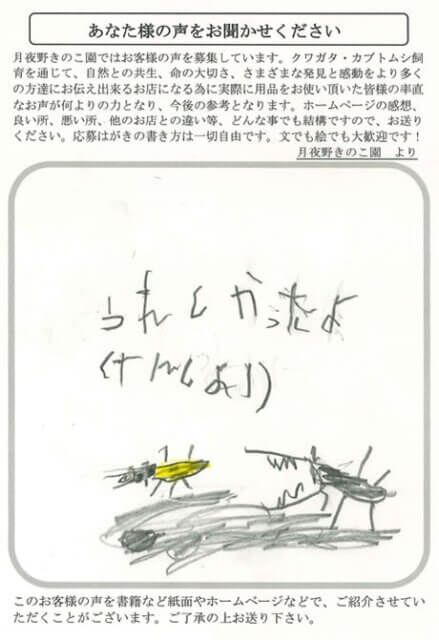 あなた様の声をお聞かせください
月夜野きのこ園ではお客様の声を募集しています。クワガタ・カブトムシ飼
育を通じて、自然との共生、命の大切さ、さまざまな発見と感動をより多く
の方達にお伝え出来るお店になる為に実際に用品をお使い頂いた皆様の率直
なお声が何よりの力となり、今後の参考となります。ホームページの感想、
良い所、悪い所、他のお店との違い等、どんな事でも結構ですので、お送り
ください。応募はがきの書き方は一切自由です。文でも絵でも大歓迎です！
月夜野きのこ園　より
うれしかったよ
このお客様の声を書籍など紙面やホームページなどで、ご紹介させてい
ただくことがございます。ご了承の上お送り下さい。